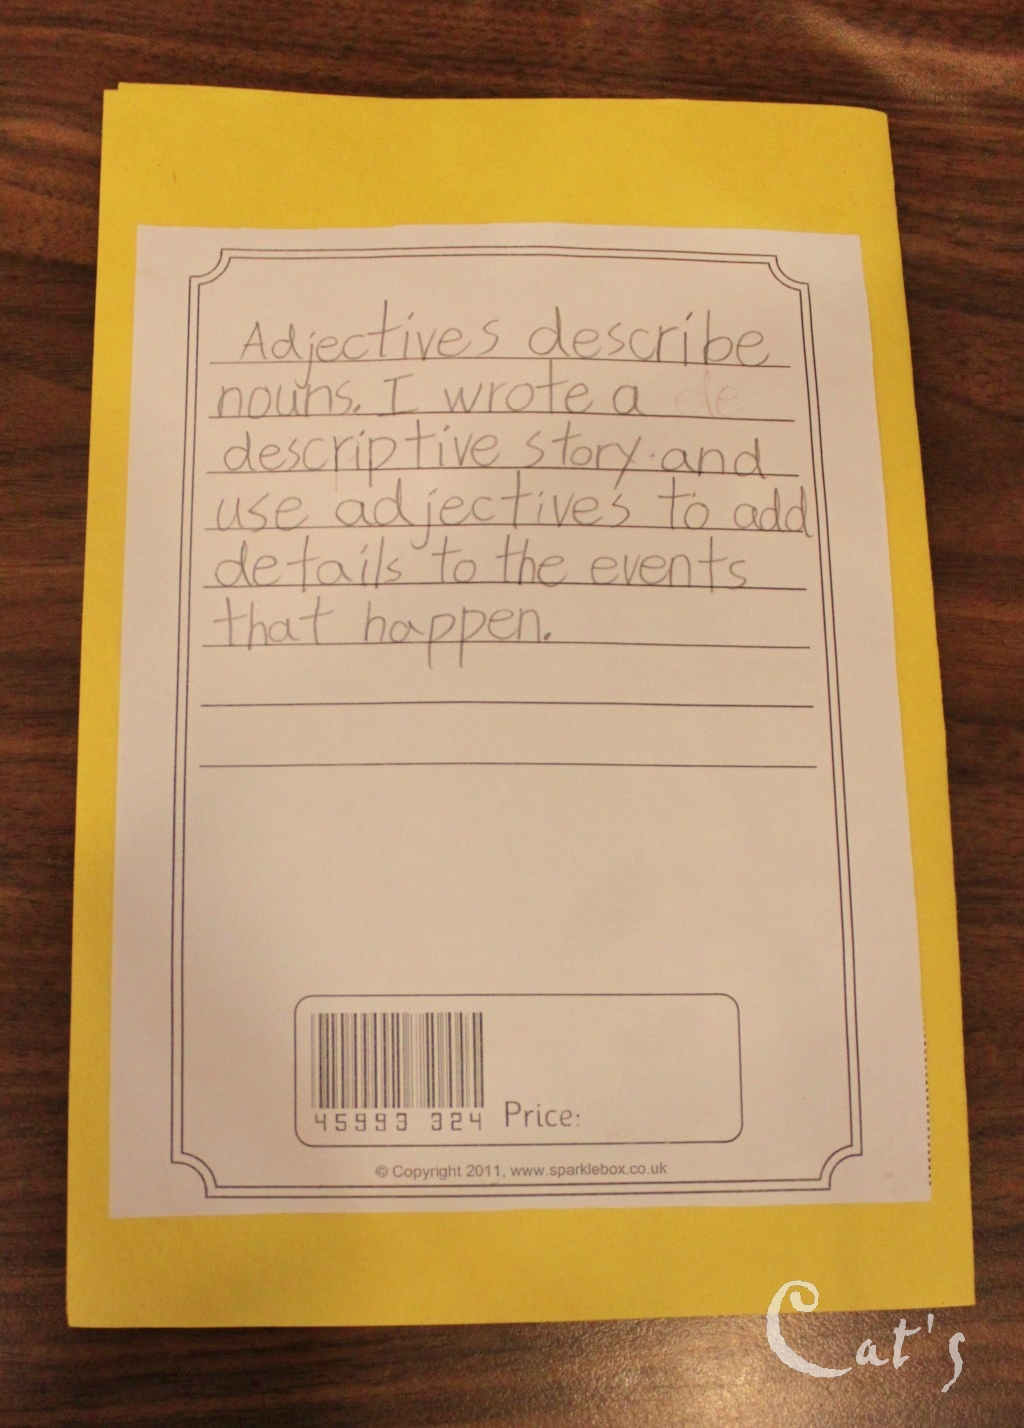 Adjectives describe
nouns. I wrote a de
descriptive story and
use adjectives to add
details to the events
that happen.
45993 324 Price:
© Copyright 2011, www.sparklebox.co.uk
Cat's